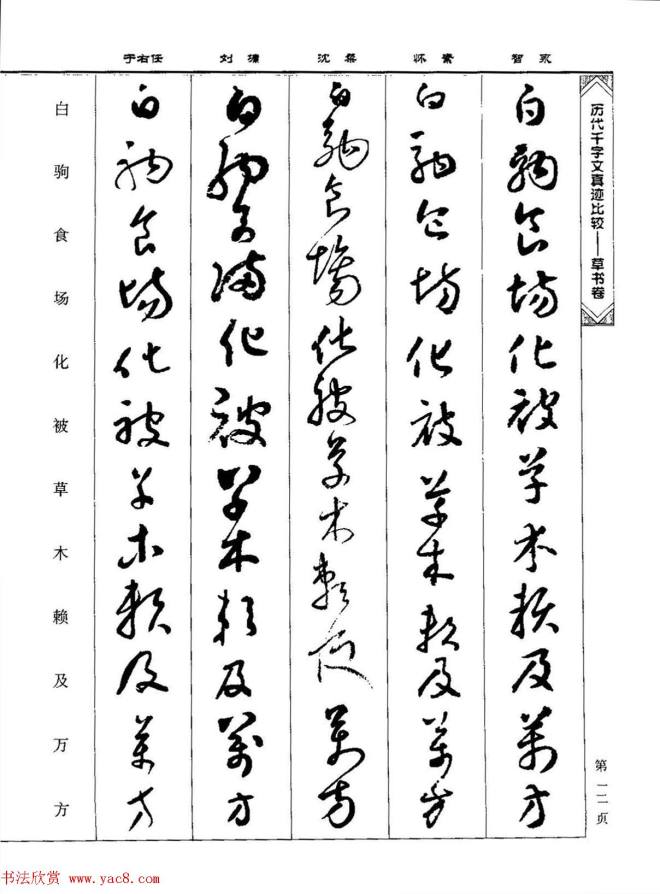 历代千字文真迹比较——草书卷
第一二页
智永
白駒食場化被草木賴及萬方
怀素
白駒食場化被草木賴及萬方
沈粲
白駒食場化被草木賴及萬方
刘墉
白駒食場化被草木賴及萬方
于右任
白駒食場化被草木賴及萬方
白驹食场化被草木赖及万方
书法欣赏 www.yac8.com